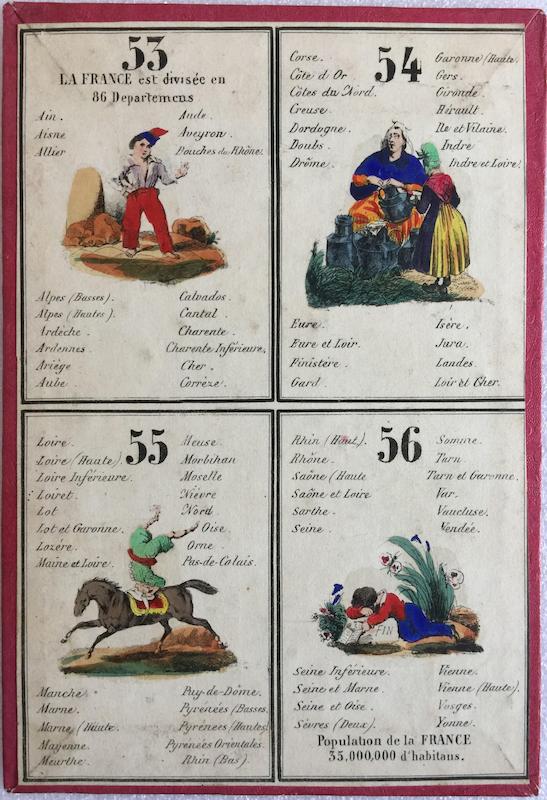 53
LA FRANCE est divisée en
86 Departemens
Ain. Aude.
Aisne Aveyron.
Allier Bouches du Rhône.
Alpes (Basses). Calvados.
Alpes (Hautes). Cantal.
Ardèche. Charente.
Ardennes Charente Inférieure.
Ariège Cher.
Aube. Corrèze.
54
Corse. Garonne (Haute.
Côte d'Or Gers.
Côtes du Nord. Gironde.
Creuse. Hérault.
Dordogne. Ile et Vilaine.
Doubs. Indre
Drôme. Indre et Loire.
Eure. Isère.
Eure et Loir. Jura.
Finistère. Landes.
Gard. Loir et Cher.
55
Loire. Meuse.
Loire (Haute). Morbihan
Loire Inférieure. Moselle
Loiret. Nièvre
Lot Nord.
Lot et Garonne. Oise.
Lozére. Orne.
Maine et Loire. Pas-de-Calais.
Manche. Puy-de-Dôme.
Marne. Pyrenées (Basses.
Marne (Haute. Pyrenées (Hautes)
Mayenne. Pyrenées Orientales.
Meurthe. Rhin (Bas).
56
Rhin (Haut). Somme.
Rhône. Tarn
Saône (Haute Tarn et Garonne.
Saône et Loire Var.
Sarthe. Vaucluse.
Seine. Vendée.
FIN
Seine Inférieure. Vienne.
Seine et Marne. Vienne (Haute).
Seine et Oise. Vosges.
Sèvres (Deux). Yonne.
Population de la FRANCE
33,000,000 d'habitans.